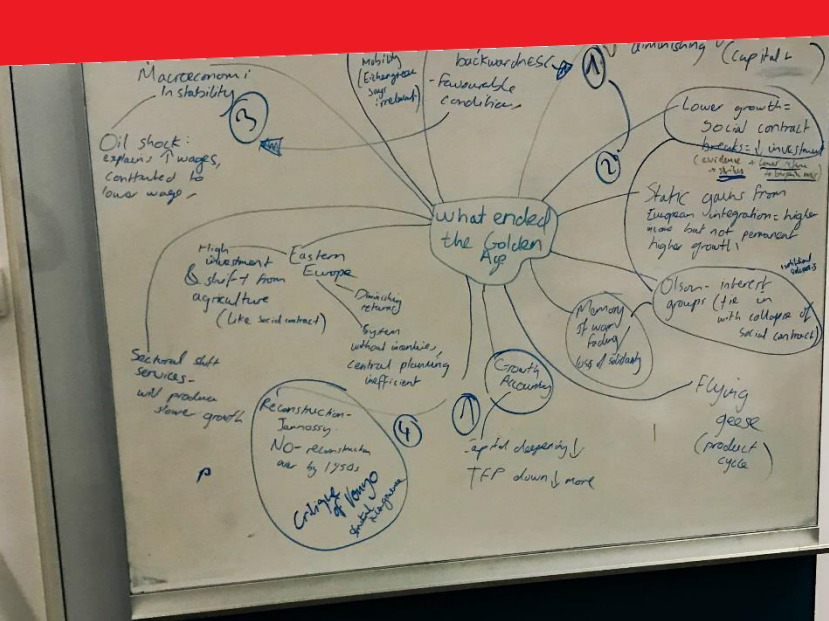 Macroeconomi
Instability
3
Oil shock:
explains ↑ wages,
contributed to
lower wage
Mobility
(Eichengreen
says
irrelevant)
backwardness
- Favourable
conditions
1
diminishing
(capital
2
Lower growth =
Social contract
breaks = ↓ investment
(evidence
strikes
Static gains from
European integration = higher
income but not permanent
higher growth
What ended
the Golden
Age
Olson - interest
groups (tie in
with collapse of
social contract)
Memory
of war
fading
loss of solidarity
Flying
geese
(product
cycle)
Growth
Accounting
1
Capital deepening ↓
TFP down ↓ more
Eastern
Europe
High
investment
& shift from
agriculture
(Like social contract)
Diminishing
returns
System
without incentives,
central planning
inefficient
Sectoral shift
services -
will produce
slower growth
4
Reconstruction -
Jannossy.
NO - reconstruction
over by 1950s
Critique
of Vonyo
P